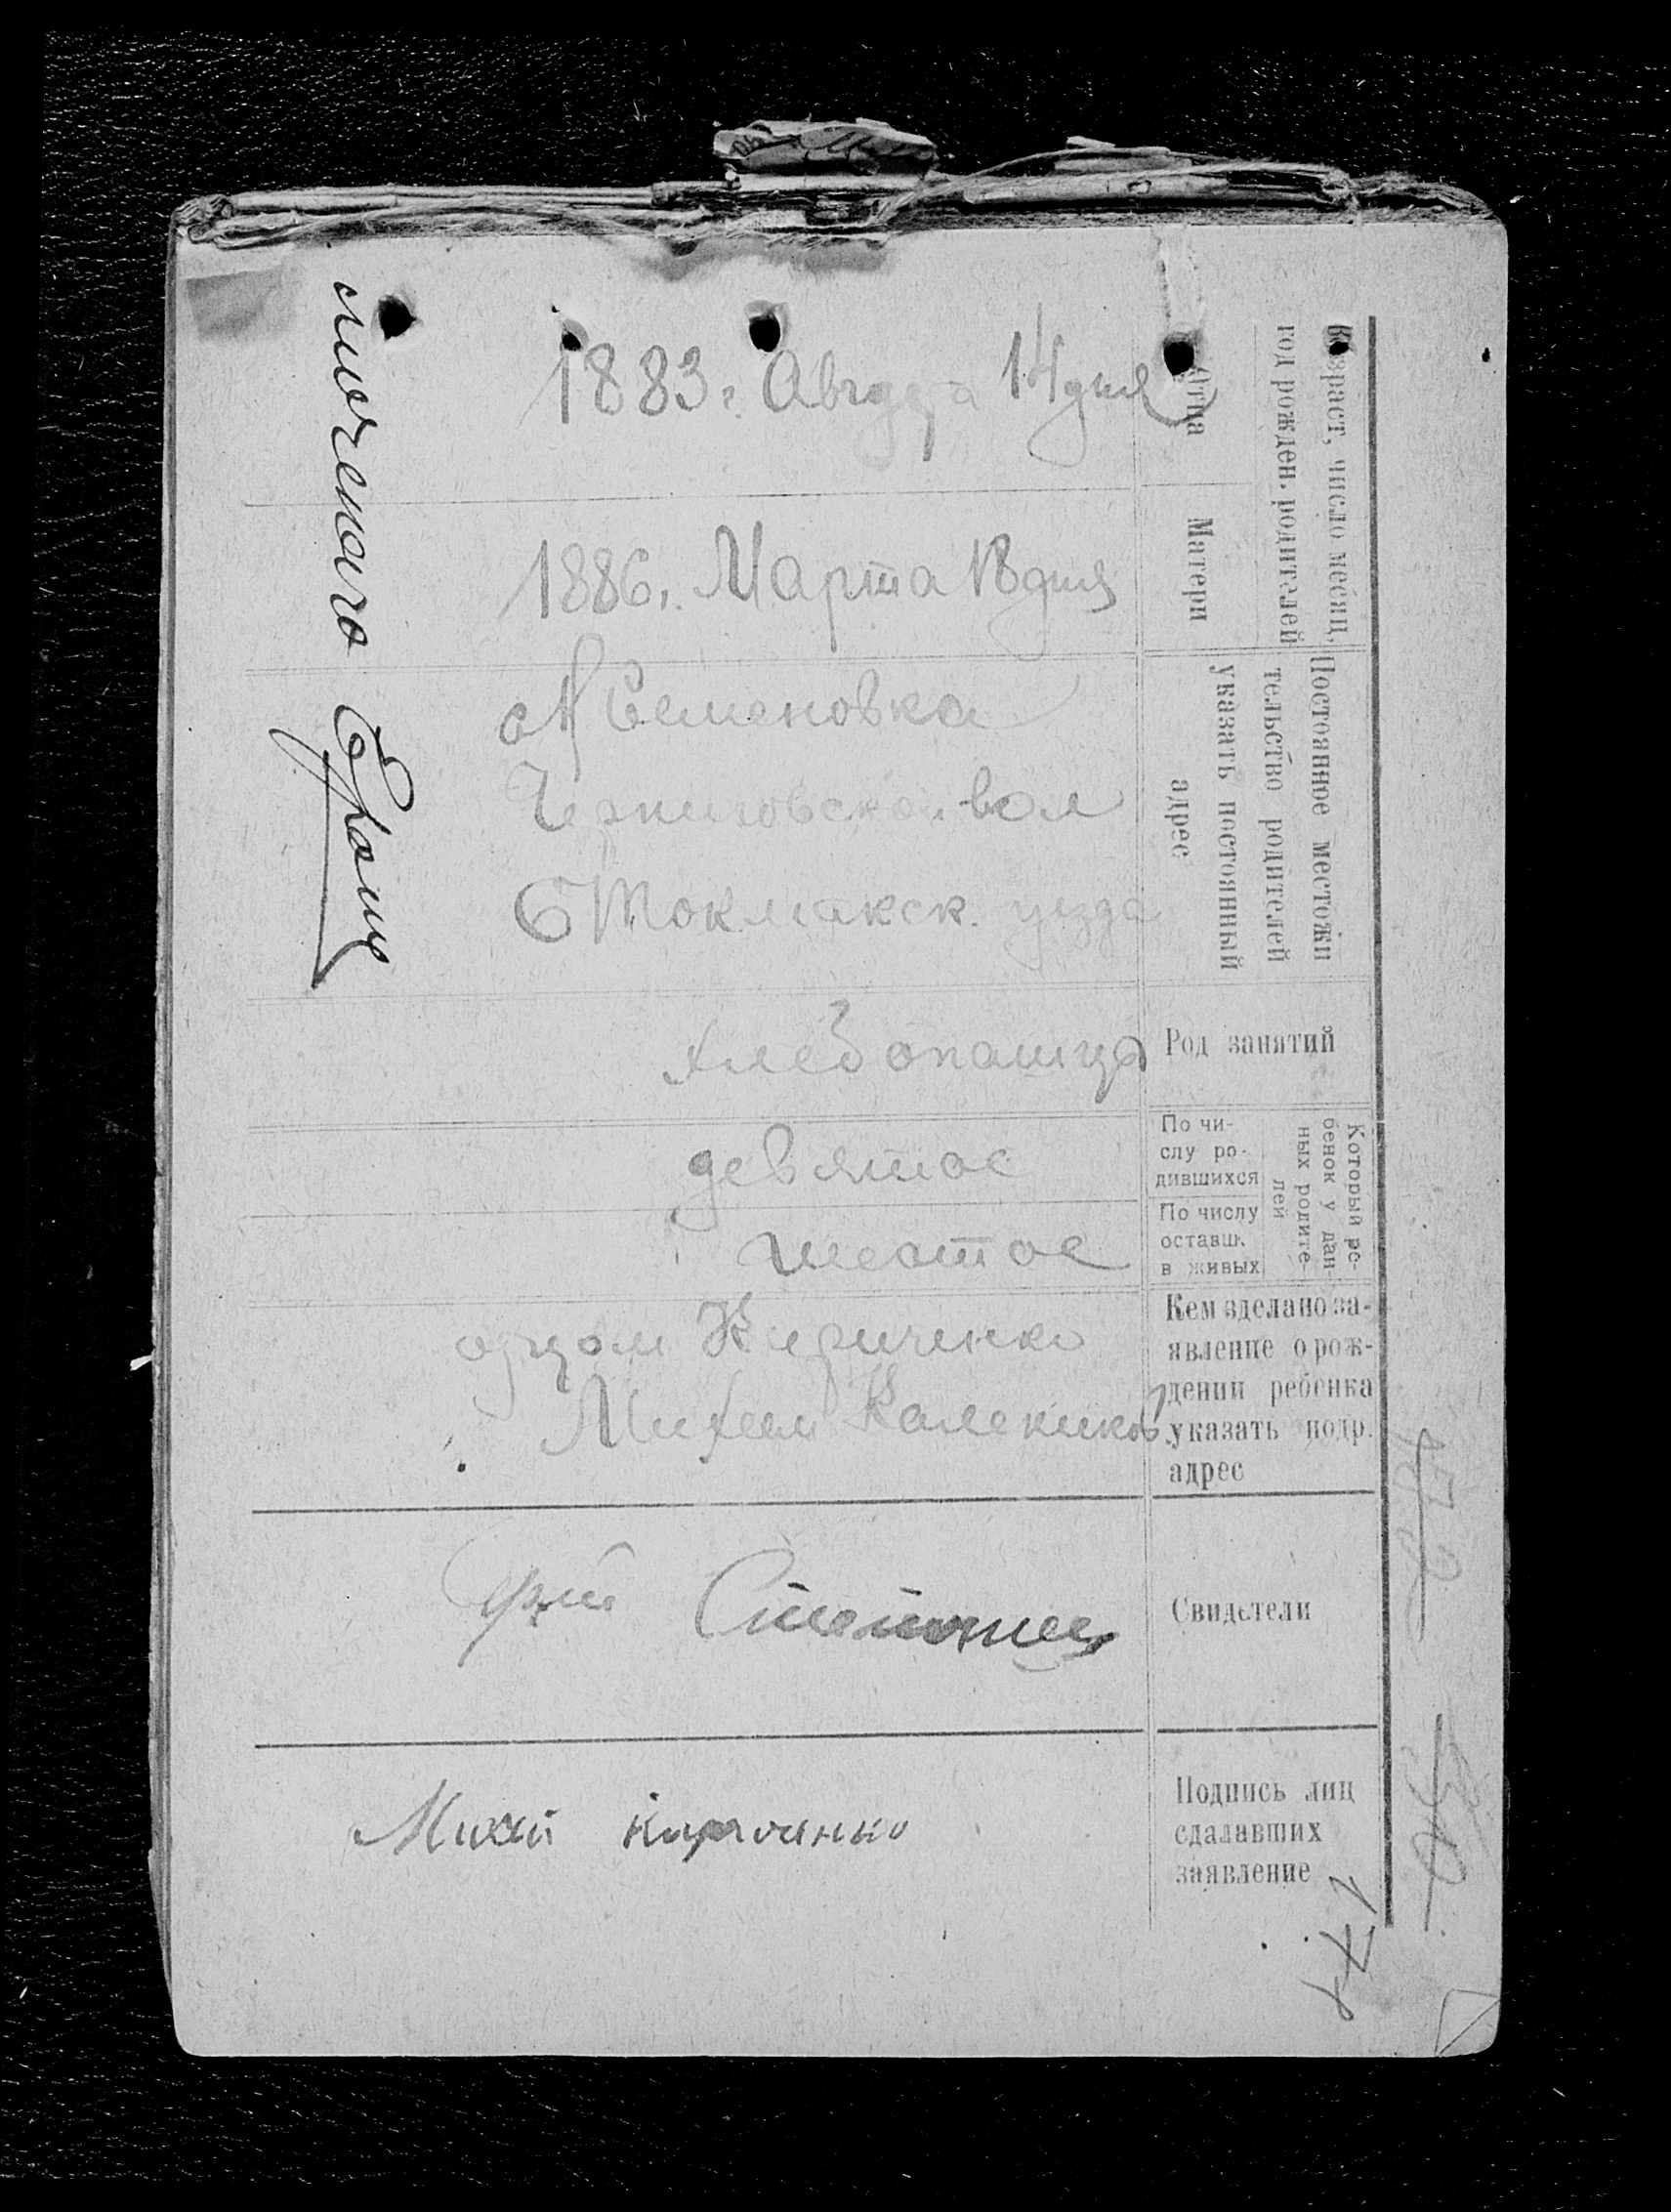 Возраст, число месяц,
год рожден. родителей
Отца
1883 г. Августа 14 дня
Матери
1886 г. Марта 13 дня
Постоянное местожи
тельство родителей
указать постоянный
адрес
Семеновка
Черниговской вол
Б Токмакск. уезда
Род занятий
хлебопашца
Который ре-
бенок у дан-
ных родите-
лей
По чи-
слу ро-
дившихся
девятое
По числу
оставш.
в живых
шестое
Кем зделано за-
явление о рож-
дении ребенка
указать подр.
адрес
отцом Кириченко
Михеем Калеников
Свидетели
Подпись лиц
сдалавших
заявление
Михей Кириченко
172
174